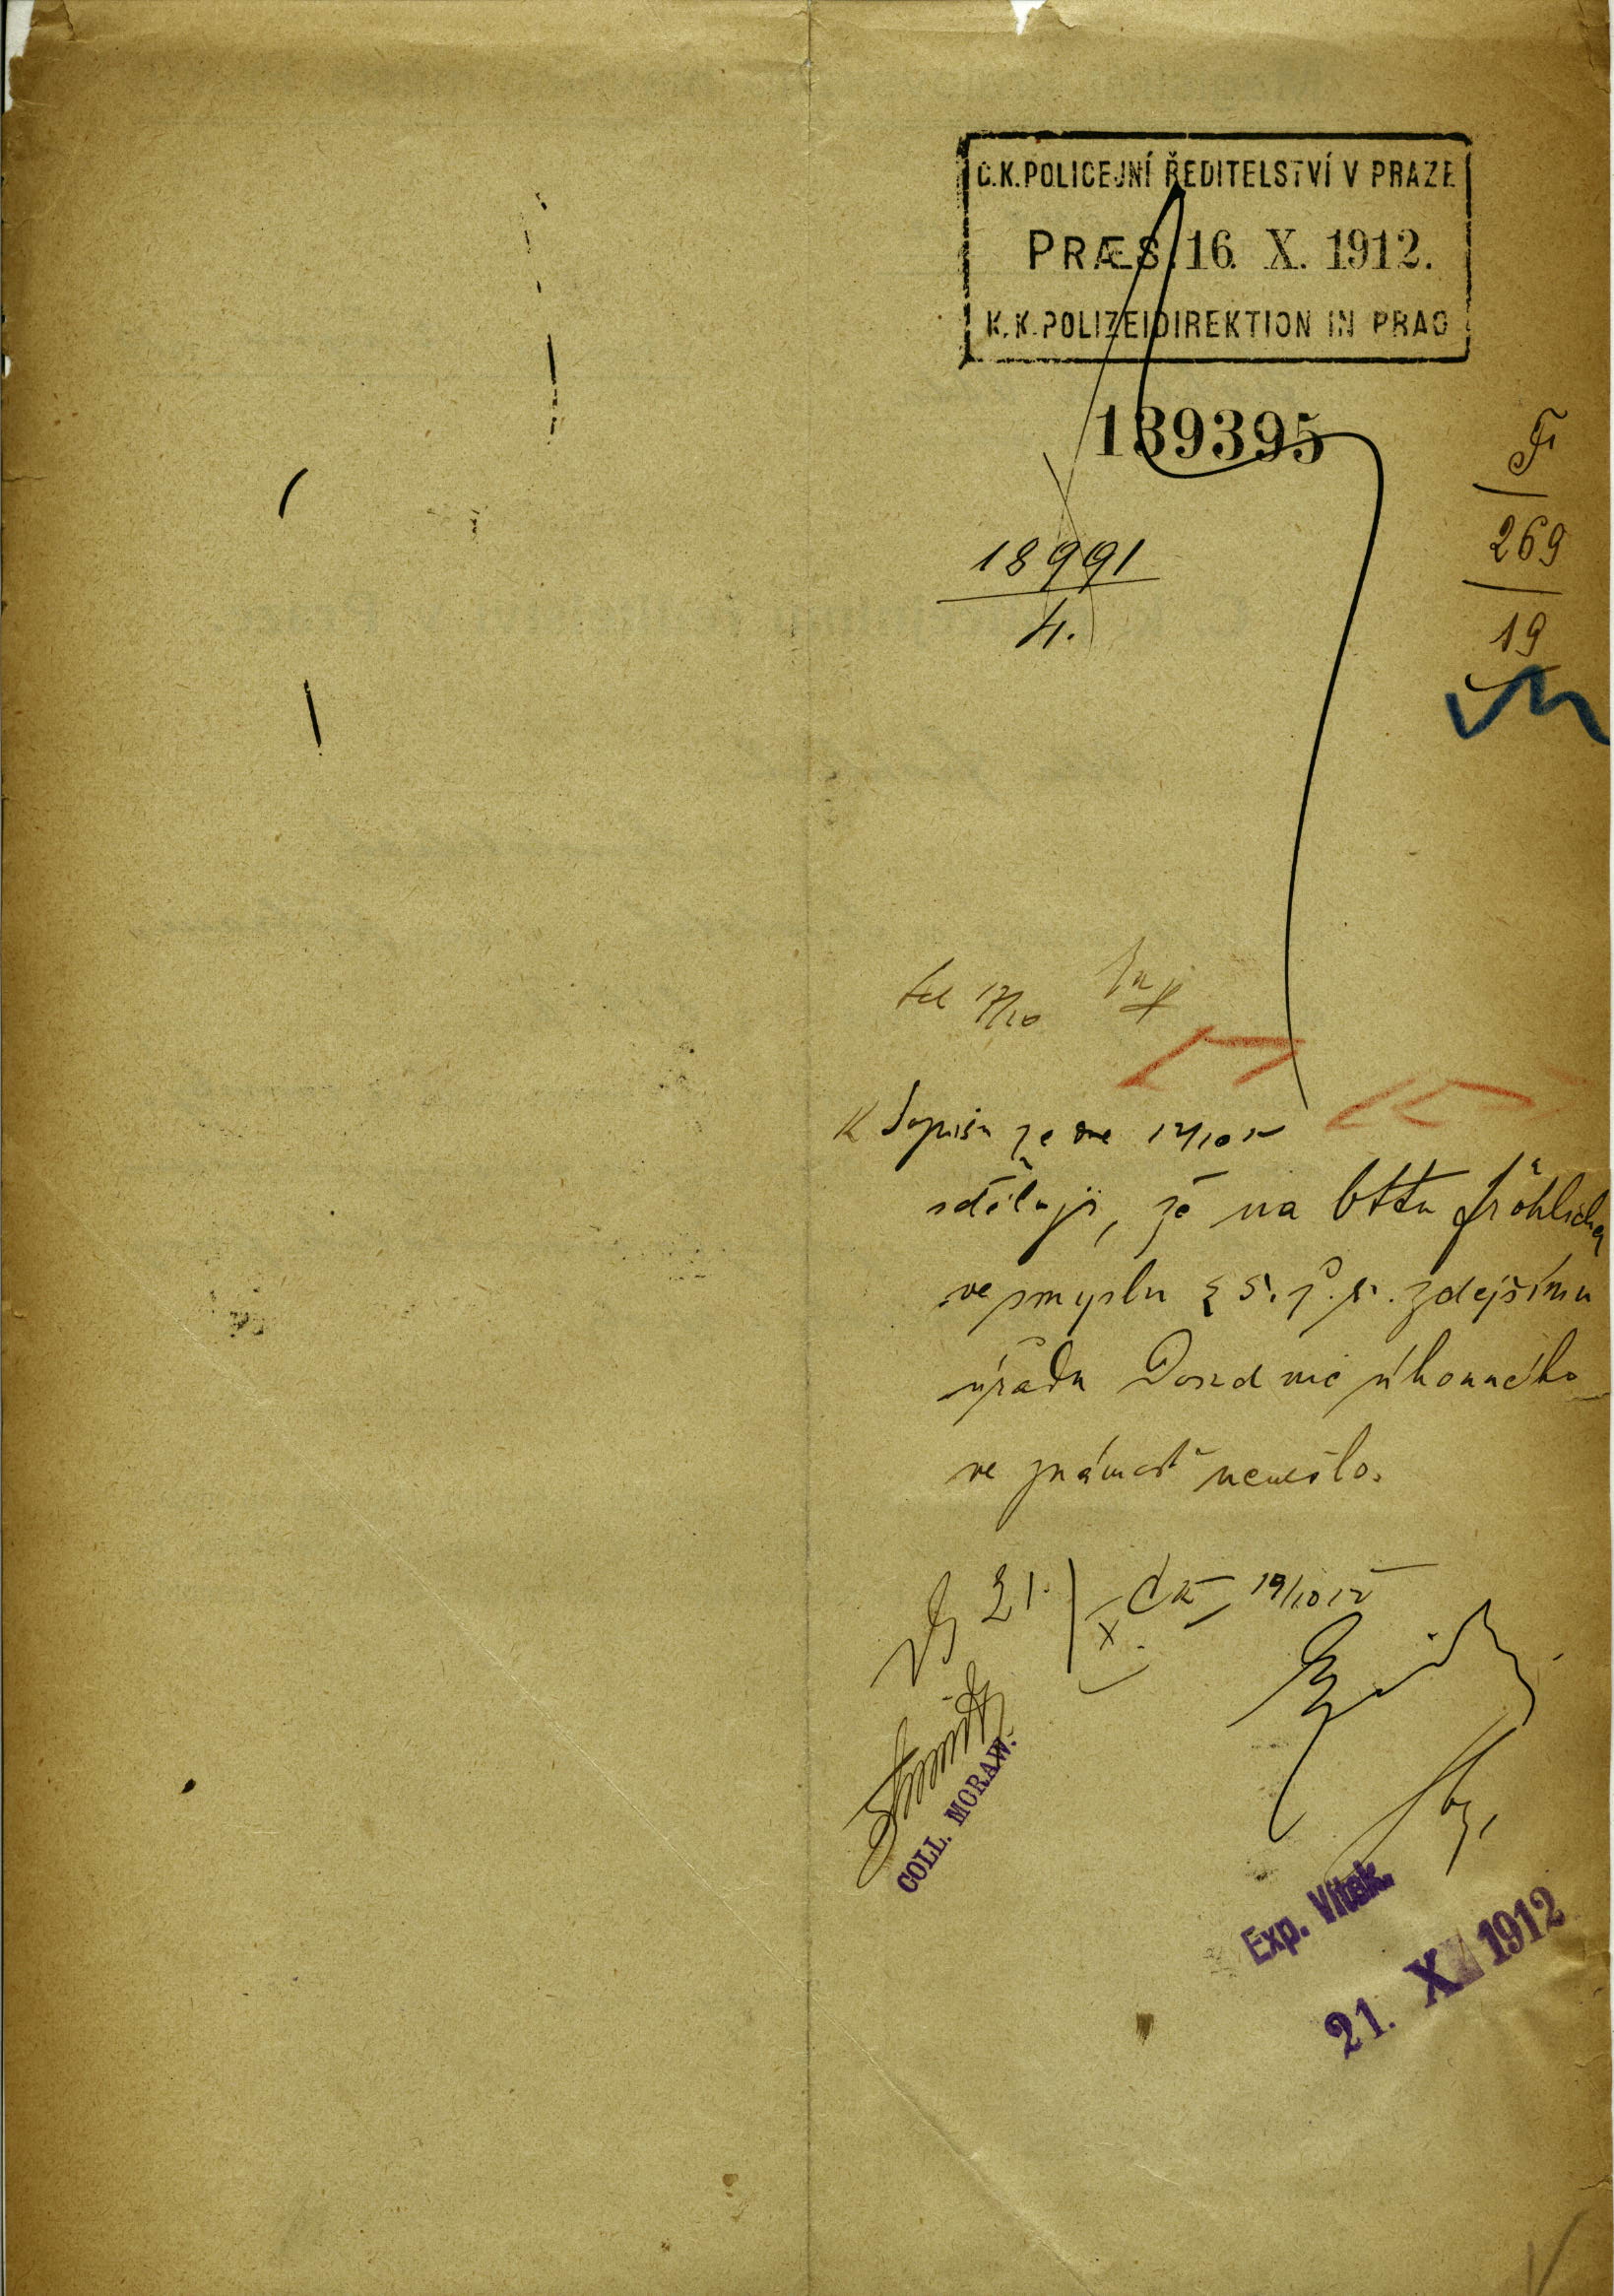 C.K.POLICEJNÍ ŘEDITELSTVÍ V PRAZE
PRÆS. 16. X. 1912.
K.K.POLIZEIDIREKTION IN PRAG
139395
F
269
19
18991
4.
17/10
K dopisu ze dne 12/10 12
sděluji, že na Ottu Fröhlicha
ve smyslu § 5. ř. s. zdejšímu
úřadu dosud nic úhonného
ve známost nevešlo.
21. X. 19/10 12
COLL. MORAW.
Exp. Vitek.
21. X 1912